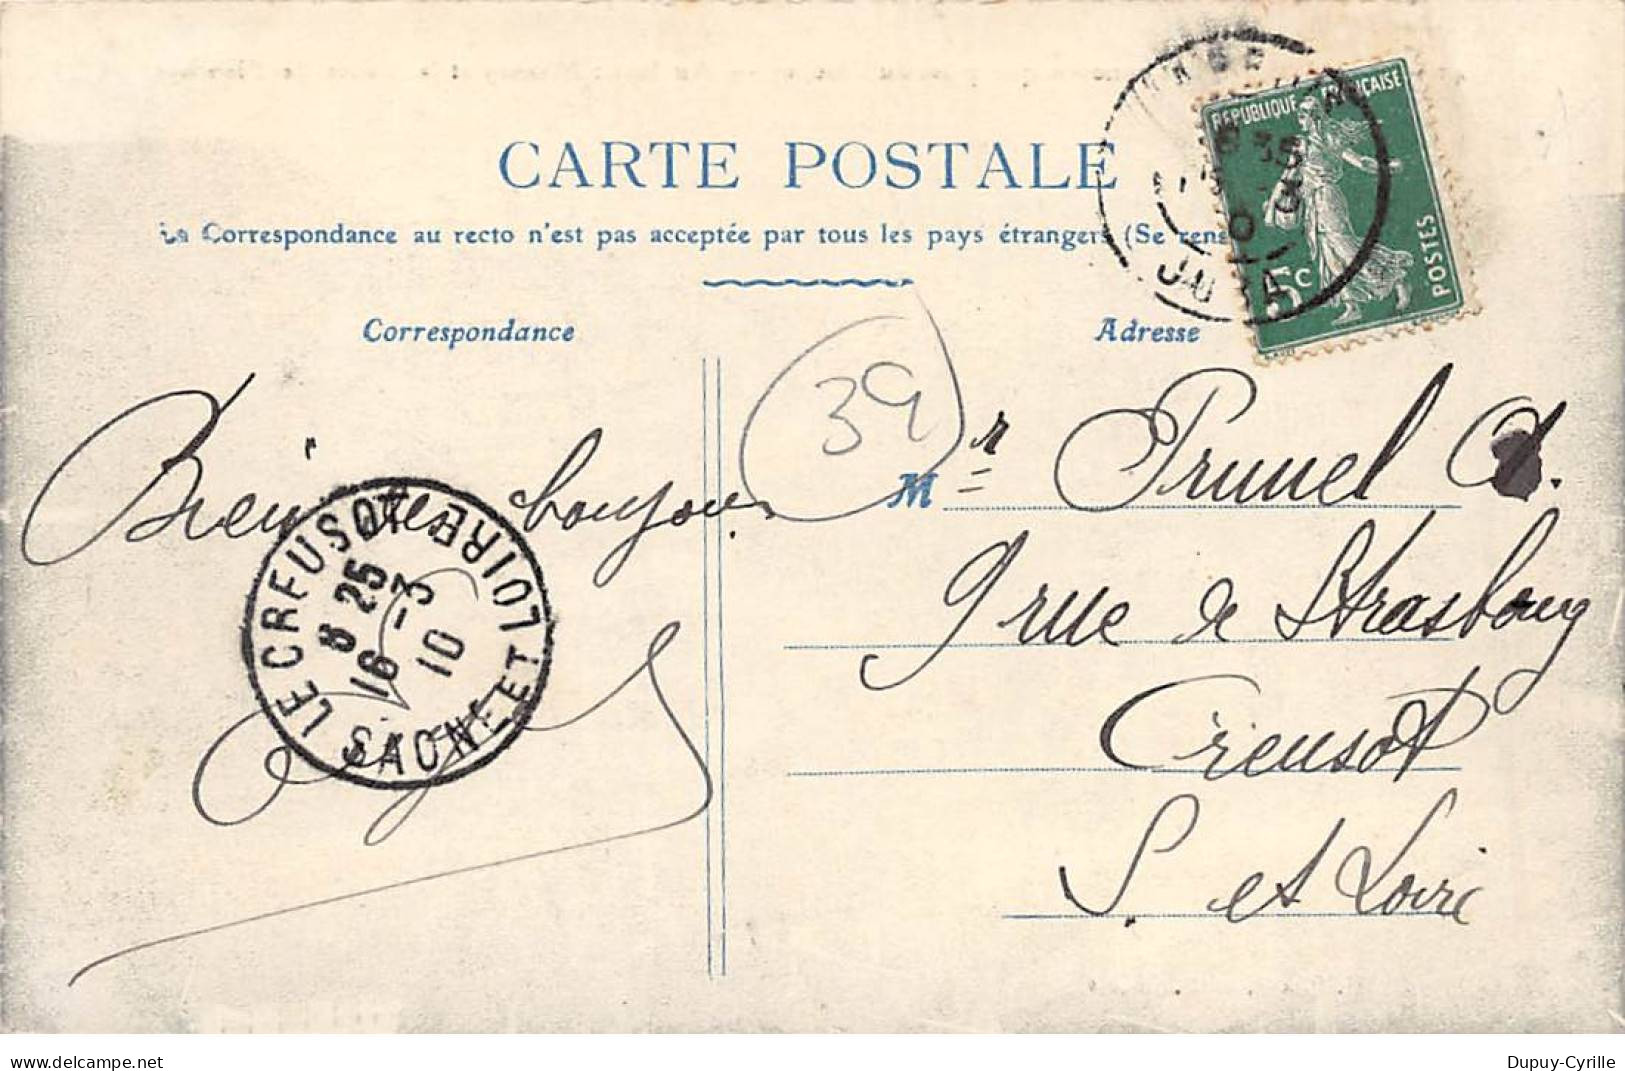 CARTE POSTALE
La Correspondance au recto n'est pas acceptée par tous les pays étrangers (Se rens
Correspondance
Adresse
RÉPUBLIQUE FRANÇAISE
POSTES
5c
JURA
39
Bien des bonjours
LE CREUSOT
SAONE ET LOIRE
8 25
16 -3
10
Mr Prunel A.
9 rue de Strasbourg
Creusot
S. et Loire
www.delcampe.net
Dupuy-Cyrille